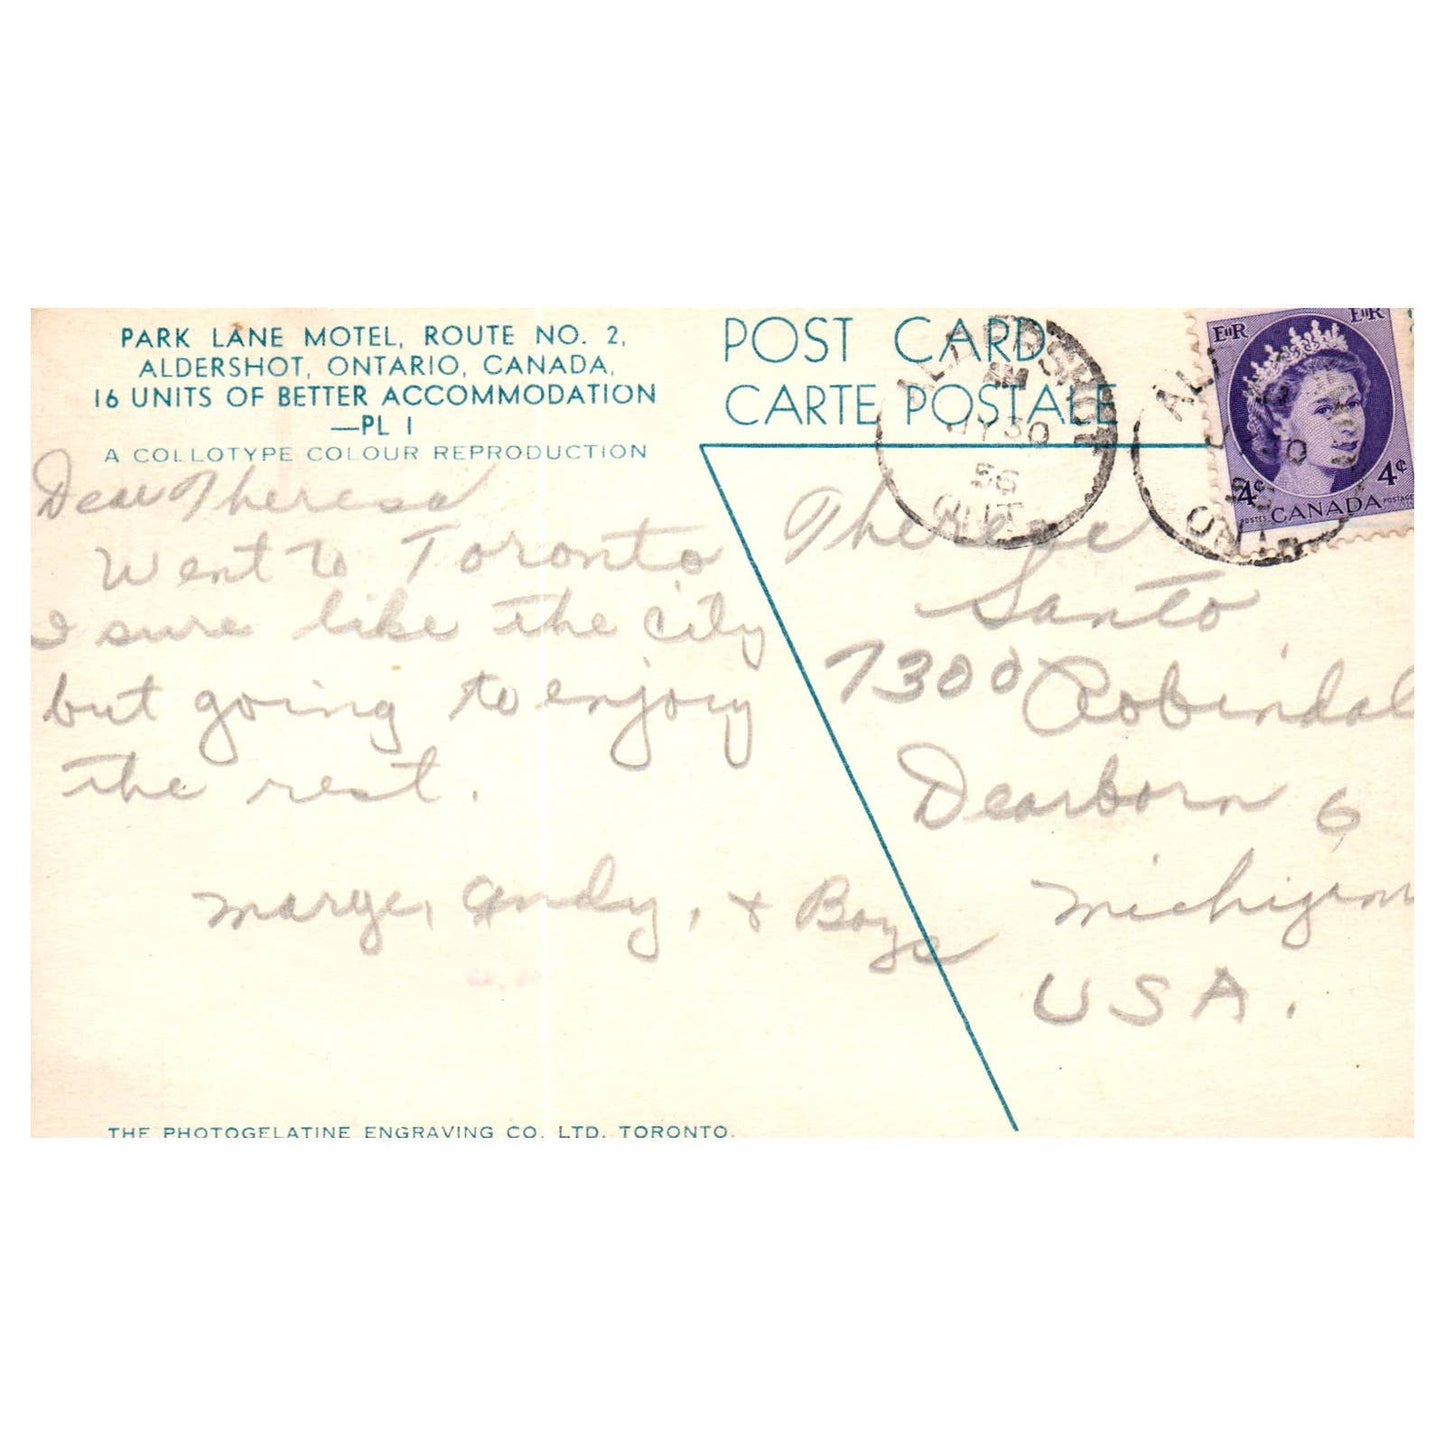 PARK LANE MOTEL, ROUTE NO. 2,
ALDERSHOT, ONTARIO, CANADA,
16 UNITS OF BETTER ACCOMMODATION
—PL 1
A COLLOTYPE COLOUR REPRODUCTION
Dear Theresa
Went to Toronto
I sure like the city
but going to enjoy
the rest.
Marge, Andy, & Boys
THE PHOTOGELATINE ENGRAVING CO. LTD. TORONTO.
POST CARD
CARTE POSTALE
ALDERSHOT
AM
30
56
ONT
EIIR
EIIR
4¢
4¢
POSTES CANADA POSTAGE
ONT
Theresa
Santo
7300 Robindal
Dearborn 6
Michigan
USA.